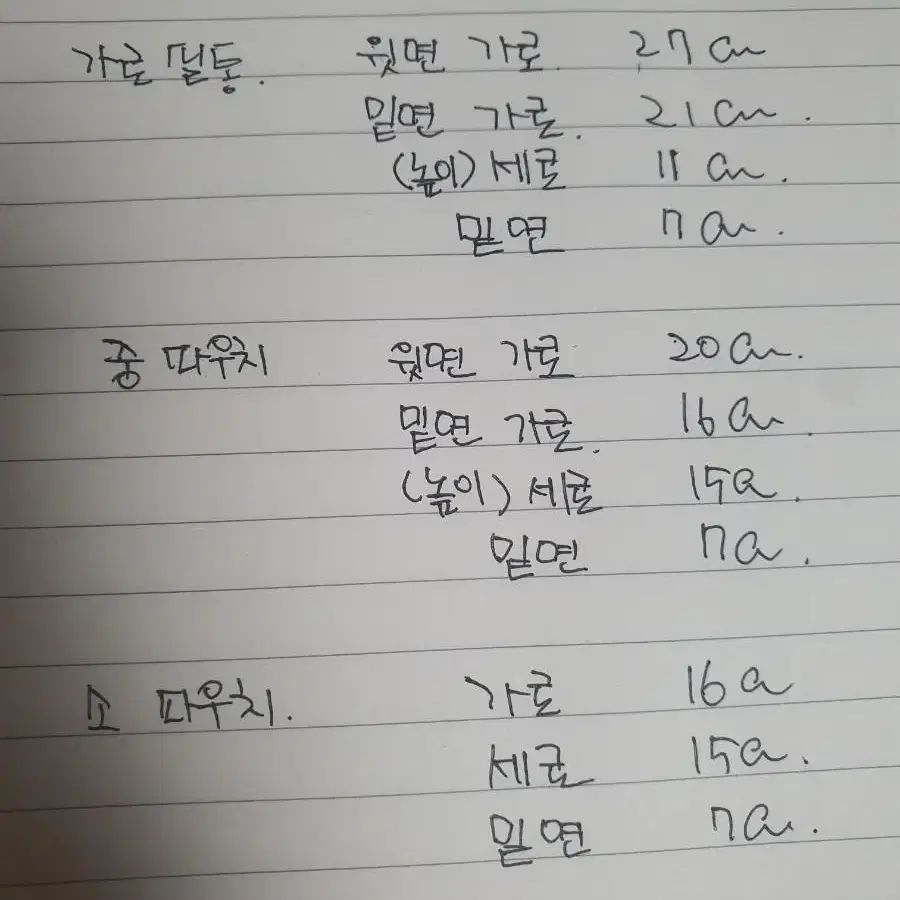 가로 필통. 윗면 가로. 27cm
밑면 가로. 21cm.
(높이) 세로 11cm.
밑면 7cm.
중 파우치 윗면 가로 20cm.
밑면 가로. 16cm.
(높이) 세로 15cm.
밑면 7cm.
소 파우치. 가로 16cm
세로 15cm.
밑면 7cm.